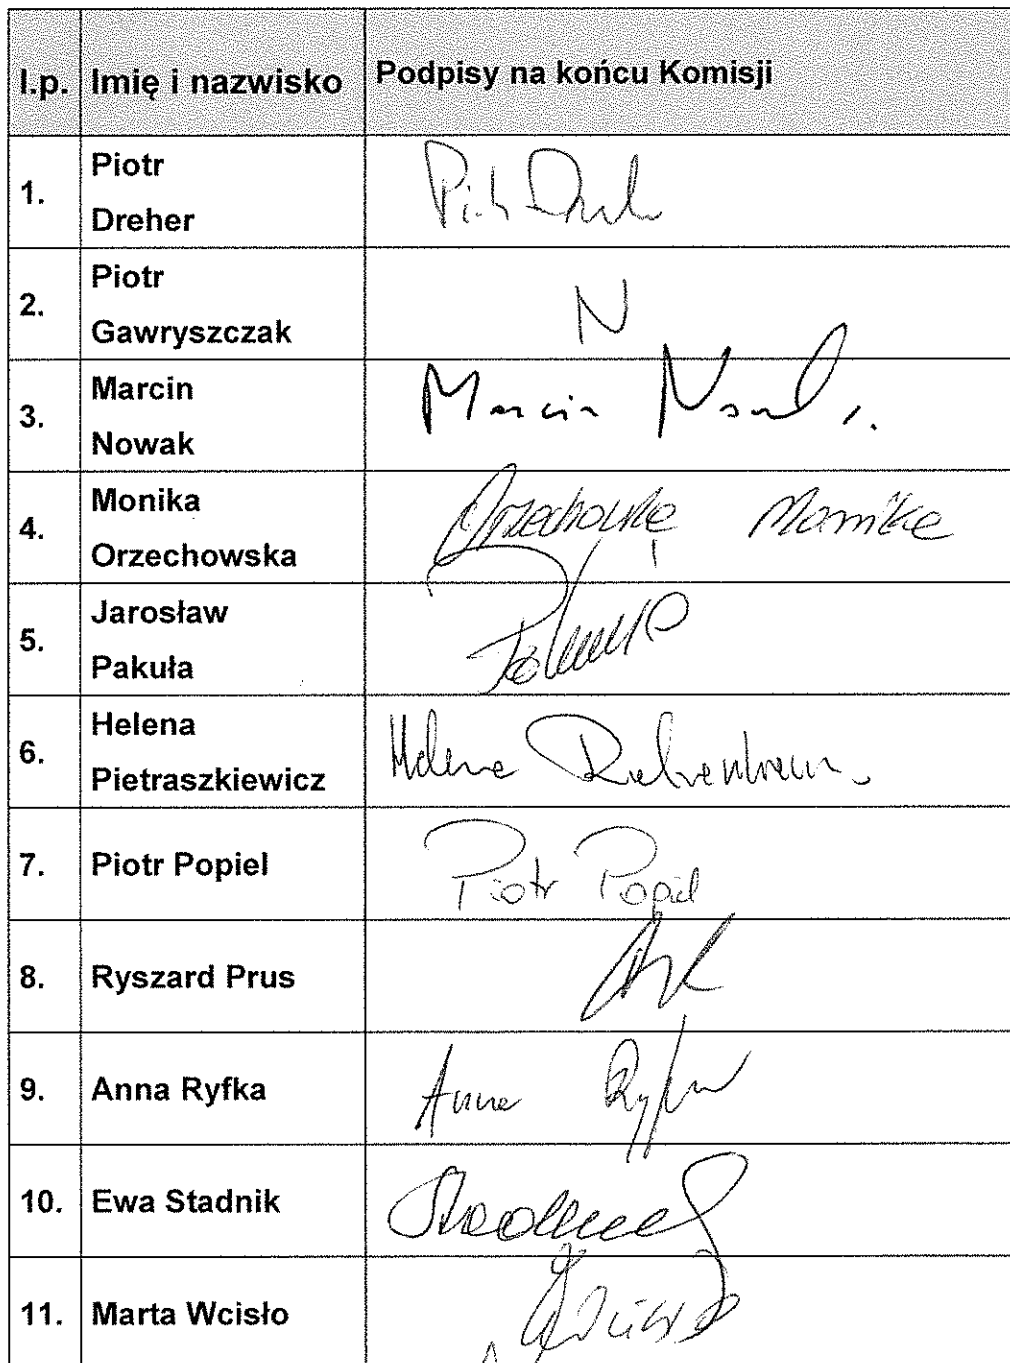 l.p. Imię i nazwisko Podpisy na końcu Komisji
1. Piotr
Dreher
2. Piotr
Gawryszczak N
3. Marcin
Nowak Marcin Nowak
4. Monika
Orzechowska Orzechowska Monika
5. Jarosław
Pakuła
6. Helena
Pietraszkiewicz Helena
7. Piotr Popiel Piotr Popiel
8. Ryszard Prus
9. Anna Ryfka Anna Ryfka
10. Ewa Stadnik
11. Marta Wcisło